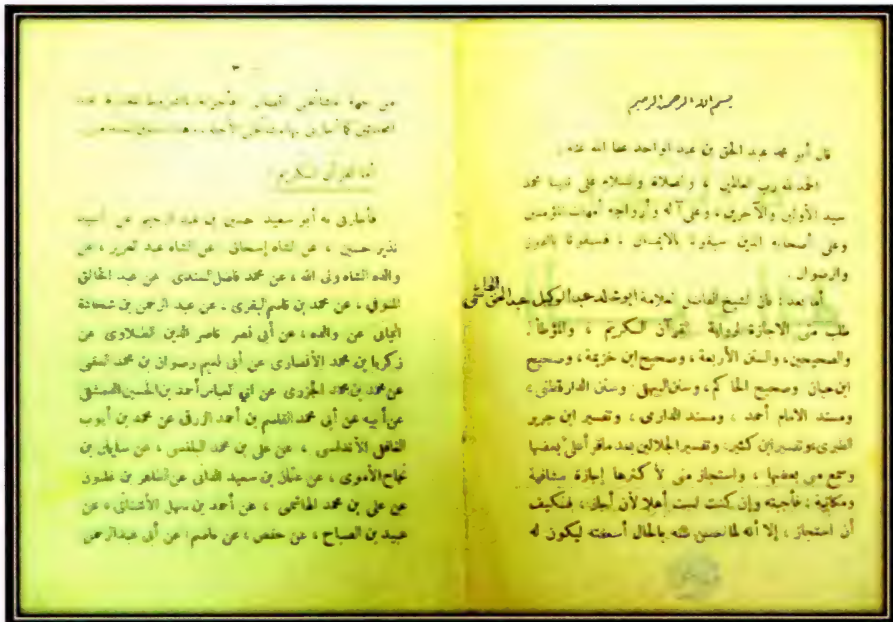 بسم الله الرحمن الرحيم
قال أبو محمد عبد الحق بن عبد الواحد عفا الله عنه :
الحمد لله رب العالمين ، والصلاة والسلام على نبينا محمد
سيد الأولين والآخرين ، وعلى آله وأزواجه أمهات المؤمنين
وعلى أصحابه الذين سبقونا بالايمان . فسبقونا بالفوز
والرضوان .
أما بعد : فان الشيخ الفاضل العلامة ابو خالد عبد الوكيل عبد الحق الهاشمي
طلب منى الاجازة لرواية القرآن الكريم ، والموطأ ،
والصحيحين، والسنن الأربعة ، وصحيح ابن خزيمة ، وصحيح
ابن حبان وصحيح الحاكم ، وسنن البيهقى وسنن الدارقطنى ،
ومسند الامام أحمد ، ومسند الدارمى ، وتفسير ابن جرير
الطبرى وتفسير ابن كثير وتفسير الجلالين بعد ماقرأ على بعضها
وسمع من بعضها ، واستجاز منى لأكثرها إجازة مشافهة
ومكاتبة ؛ فأجبته وإن كنت لست أهلا لأن أجاز ، فكيف
أن استجاز ، إلا أنه لما حسن ظنه بالحال أسعفته ليكون له
من جهة مشائخى اتصال فأجزته بالشروط المعتبرة عند
المحدثين كما أجازنى بها مشائخى الأجلة
أما القرآن الكريم :
فأجازنى به أبو سعيد حسين بن عبد الرحيم عن السيد
نذير حسين ، عن الشاه إسحاق عن الشاه عبد العزيز ، عن
والده الشاه ولى الله ، عن محمد فاضل السندى عن عبد الخالق
المنوفى ، عن محمد بن قاسم البقرى . عن عبد الرحمن بن شحاذة
اليمانى عن والده ، عن أبى نصر ناصر الدين الطبلاوى عن
زكريا بن محمد الأنصارى عن أبى نعيم رضوان بن محمد العقبى
عن محمد بن محمد الجزرى عن ابي العباس أحمد بن الحسين الدمشقى
عن أبيه عن أبى محمد القاسم بن أحمد الورقى عن محمد بن أيوب
الغافقى الأندلسى ، عن على بن محمد البلنسى ، عن سليمان بن
نجاح الأموى ، عن عثمان بن سعيد الدانى عن الطاهر بن غلبون
عن على بن محمد الهاشمى ، عن أحمد بن سهل الأشنانى ، عن
عبيد بن الصباح ، عن حفص ، عن عاصم ؛ عن أبى عبد الرحمن